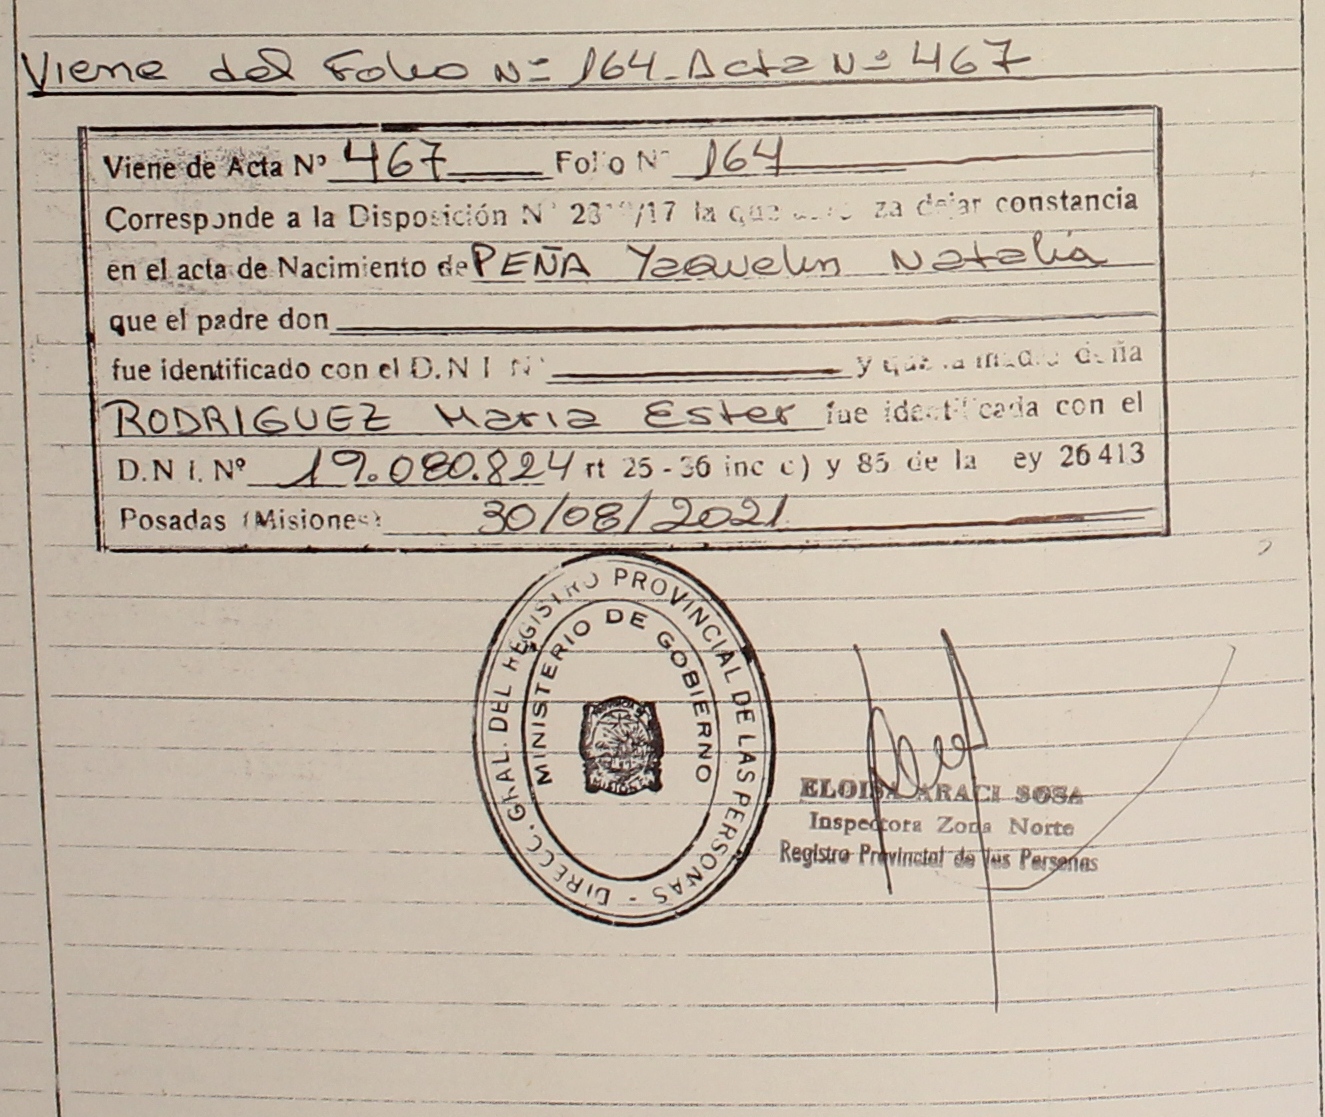 Viene del Folio Nº 164 - Acta Nº 467
Viene de Acta Nº 467 Folio Nº 164
Corresponde a la Disposición Nº /17 la que dejar constancia
en el acta de Nacimiento de PEÑA Yaquelin Natalia
que el padre don
fue identificado con el D.N.I Nº y que la madre doña
RODRIGUEZ Maria Ester fue identificada con el
D.N.I. Nº 19.080.824 rt 25 - 36 inc c) y 85 de la ey 26413
Posadas (Misiones) 30/08/2021
DIRECC. GRAL. DEL REGISTRO PROVINCIAL DE LAS PERSONAS -
MINISTERIO DE GOBIERNO
MISIONES
ELOISA ARACI SOSA
Inspectora Zona Norte
Registro Provincial de las Personas